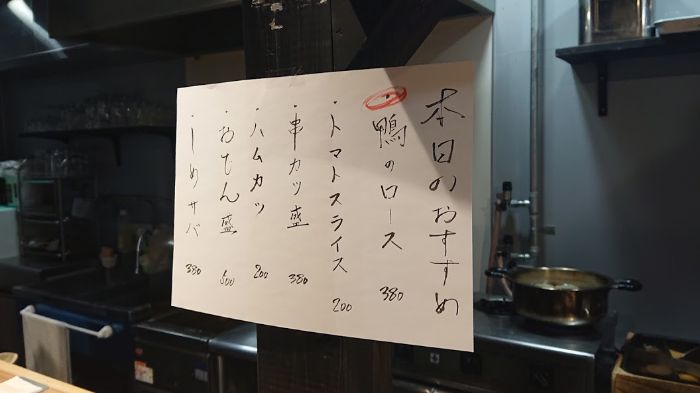 本日のおすすめ
・鴨のロース 380
・トマトスライス 200
・串カツ盛 380
・ハムカツ 200
・おでん盛 600
・しめサバ 380